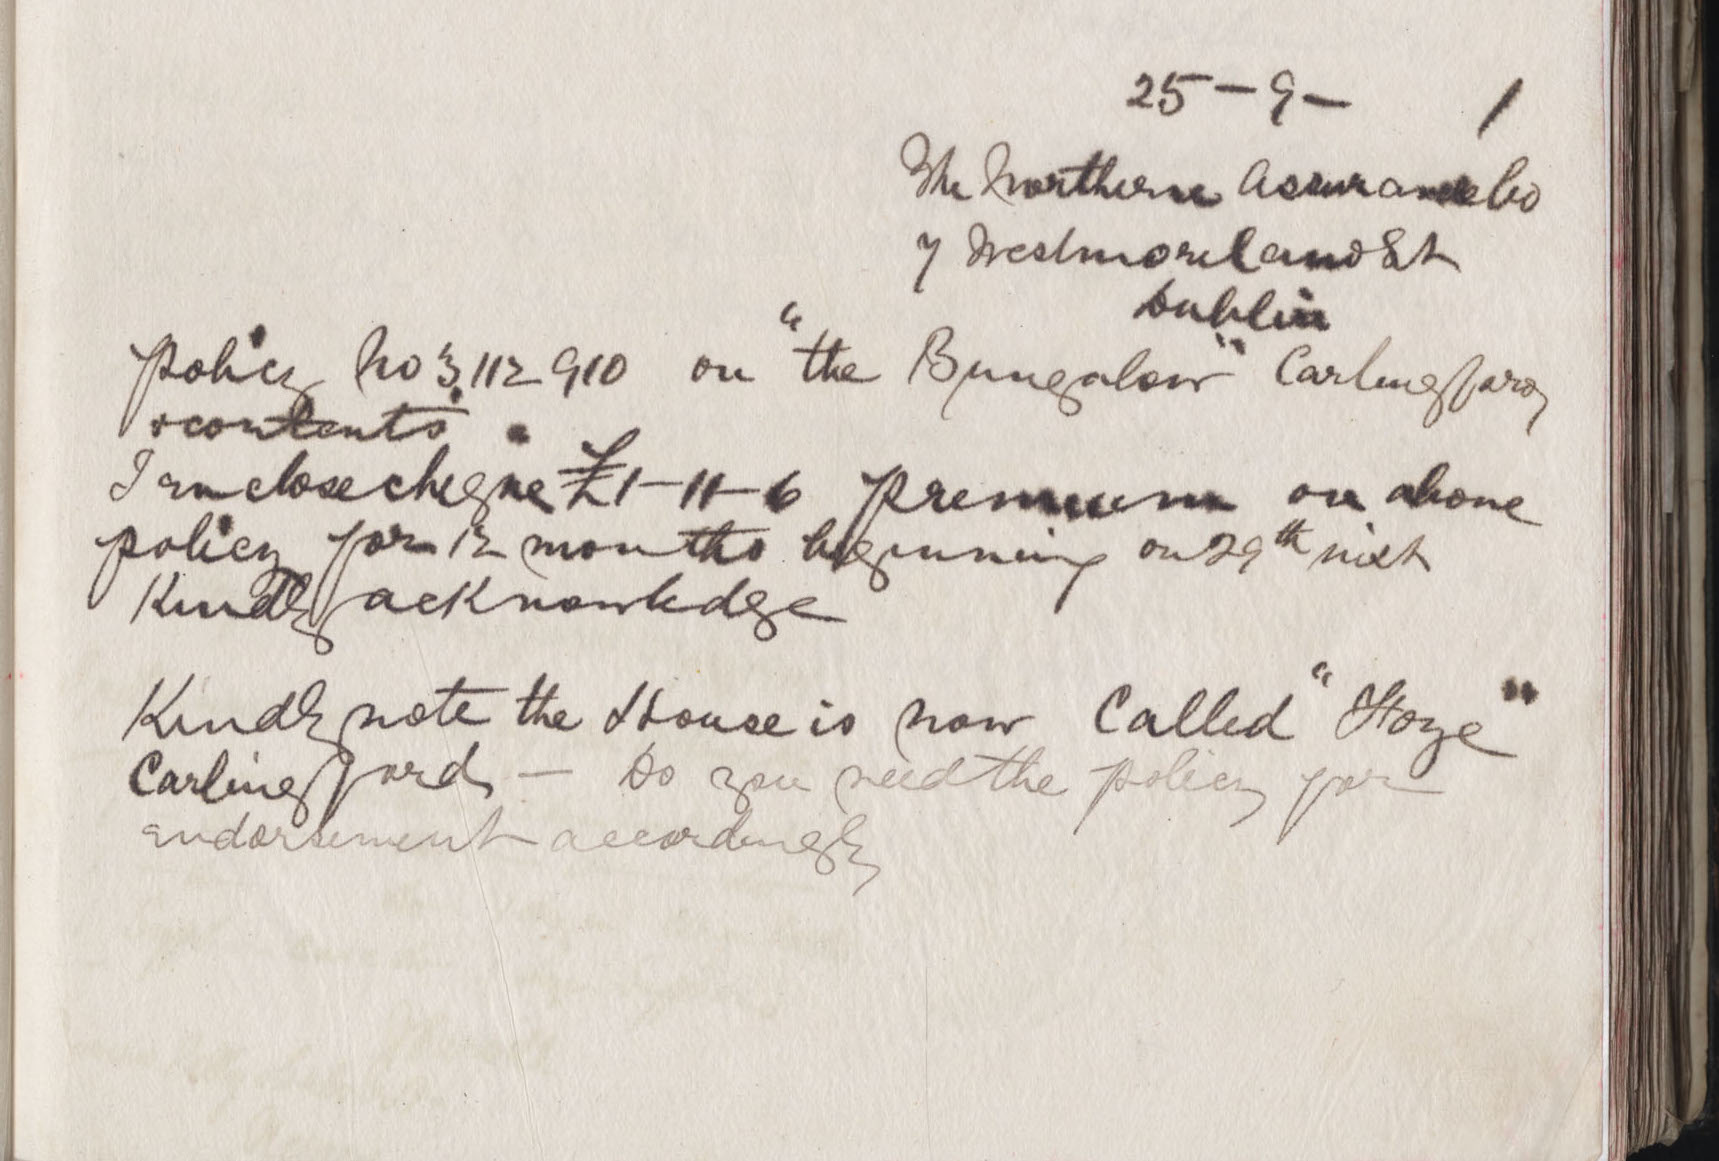 25 – 9 – 1
The Northern Assurance Co
7 Westmoreland St
Dublin
Policy No 3,112910 on "the Bungalow" Carlingford
& contents.
I enclose cheque £1–11–6 premium on above
policy for 12 months beginning on 29th inst
Kindly acknowledge
Kindly note the House is now Called " "
Carlingford – Do you need the policy for
endorsement accordingly